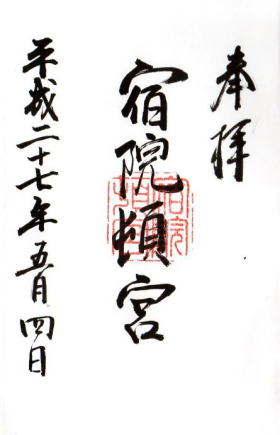 奉拝
宿院頓宮
平成二十七年五月四日